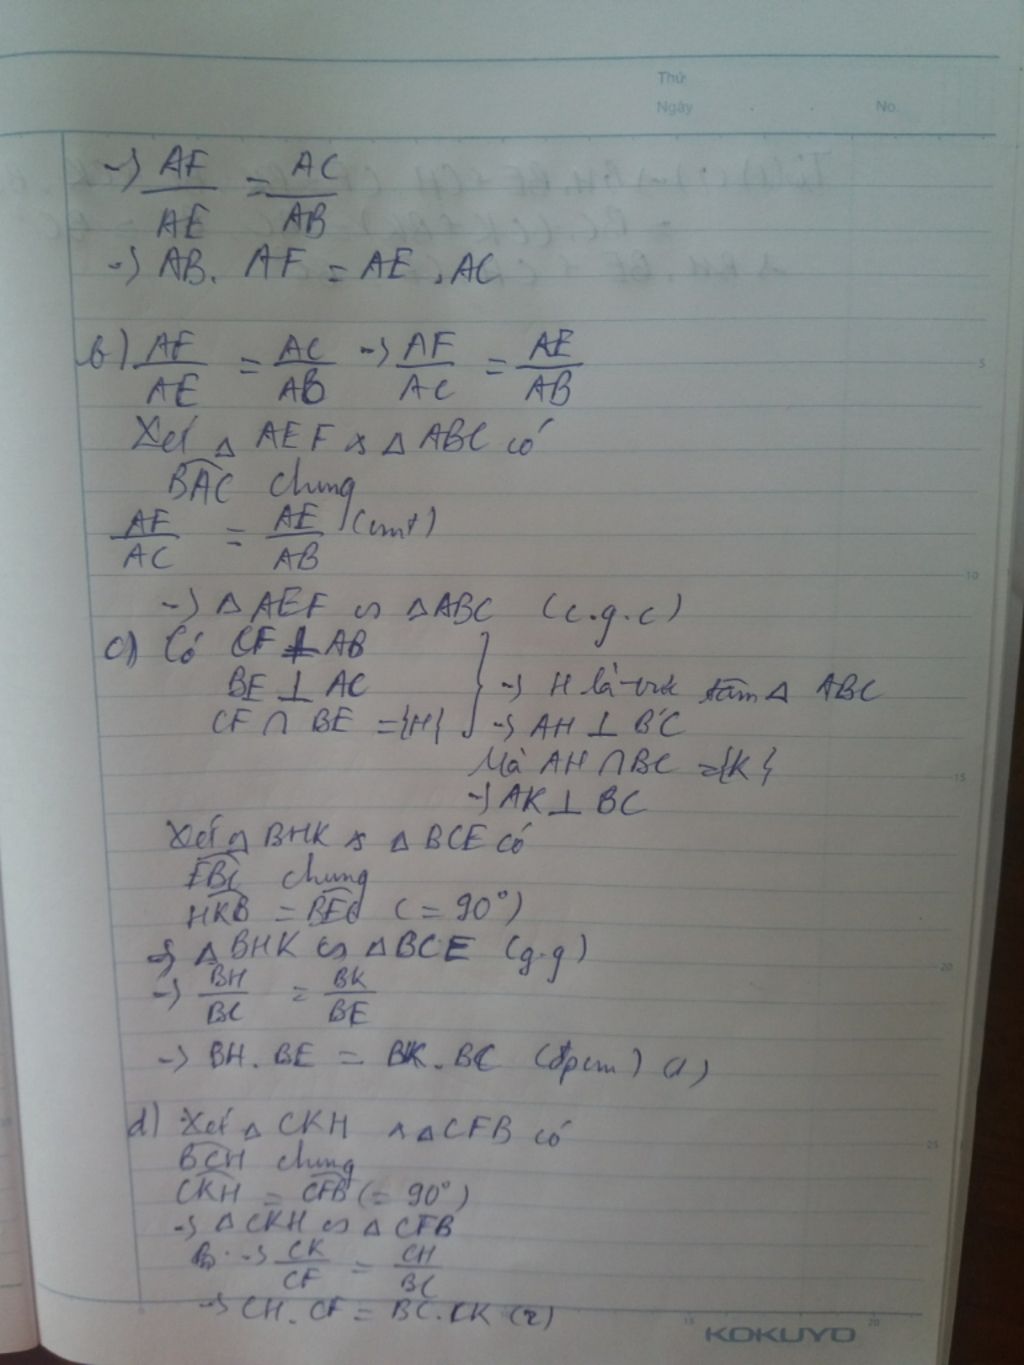 Thứ
Ngày No.
→ AF/AE = AC/AB
→ AB. AF = AE . AC
b) AF/AE = AC/AB → AF/AC = AE/AB
Xét △ AEF & △ ABC có
BAC chung
AF/AC = AE/AB (cmt)
→ △ AEF ∽ △ABC (c.g.c)
c) Có CF ⊥ AB
BE ⊥ AC → H là trực tâm △ ABC
CF ∩ BE = {H} → AH ⊥ BC
Mà AH ∩ BC = {K}
→ AK ⊥ BC
Xét △ BHK & △ BCE có
EBC chung
HKB = BEC (= 90°)
→ △ BHK ∽ △BCE (g.g)
→ BH/BC = BK/BE
→ BH. BE = BK. BC (đpcm) (1)
d) Xét △ CKH & △ CFB có
BCH chung
CKH = CFB (= 90°)
→ △ CKH ∽ △ CFB
→ CK/CF = CH/BC
→ CH. CF = BC. CK (2)
5
10
15
20
25
15 20
KOKUYO